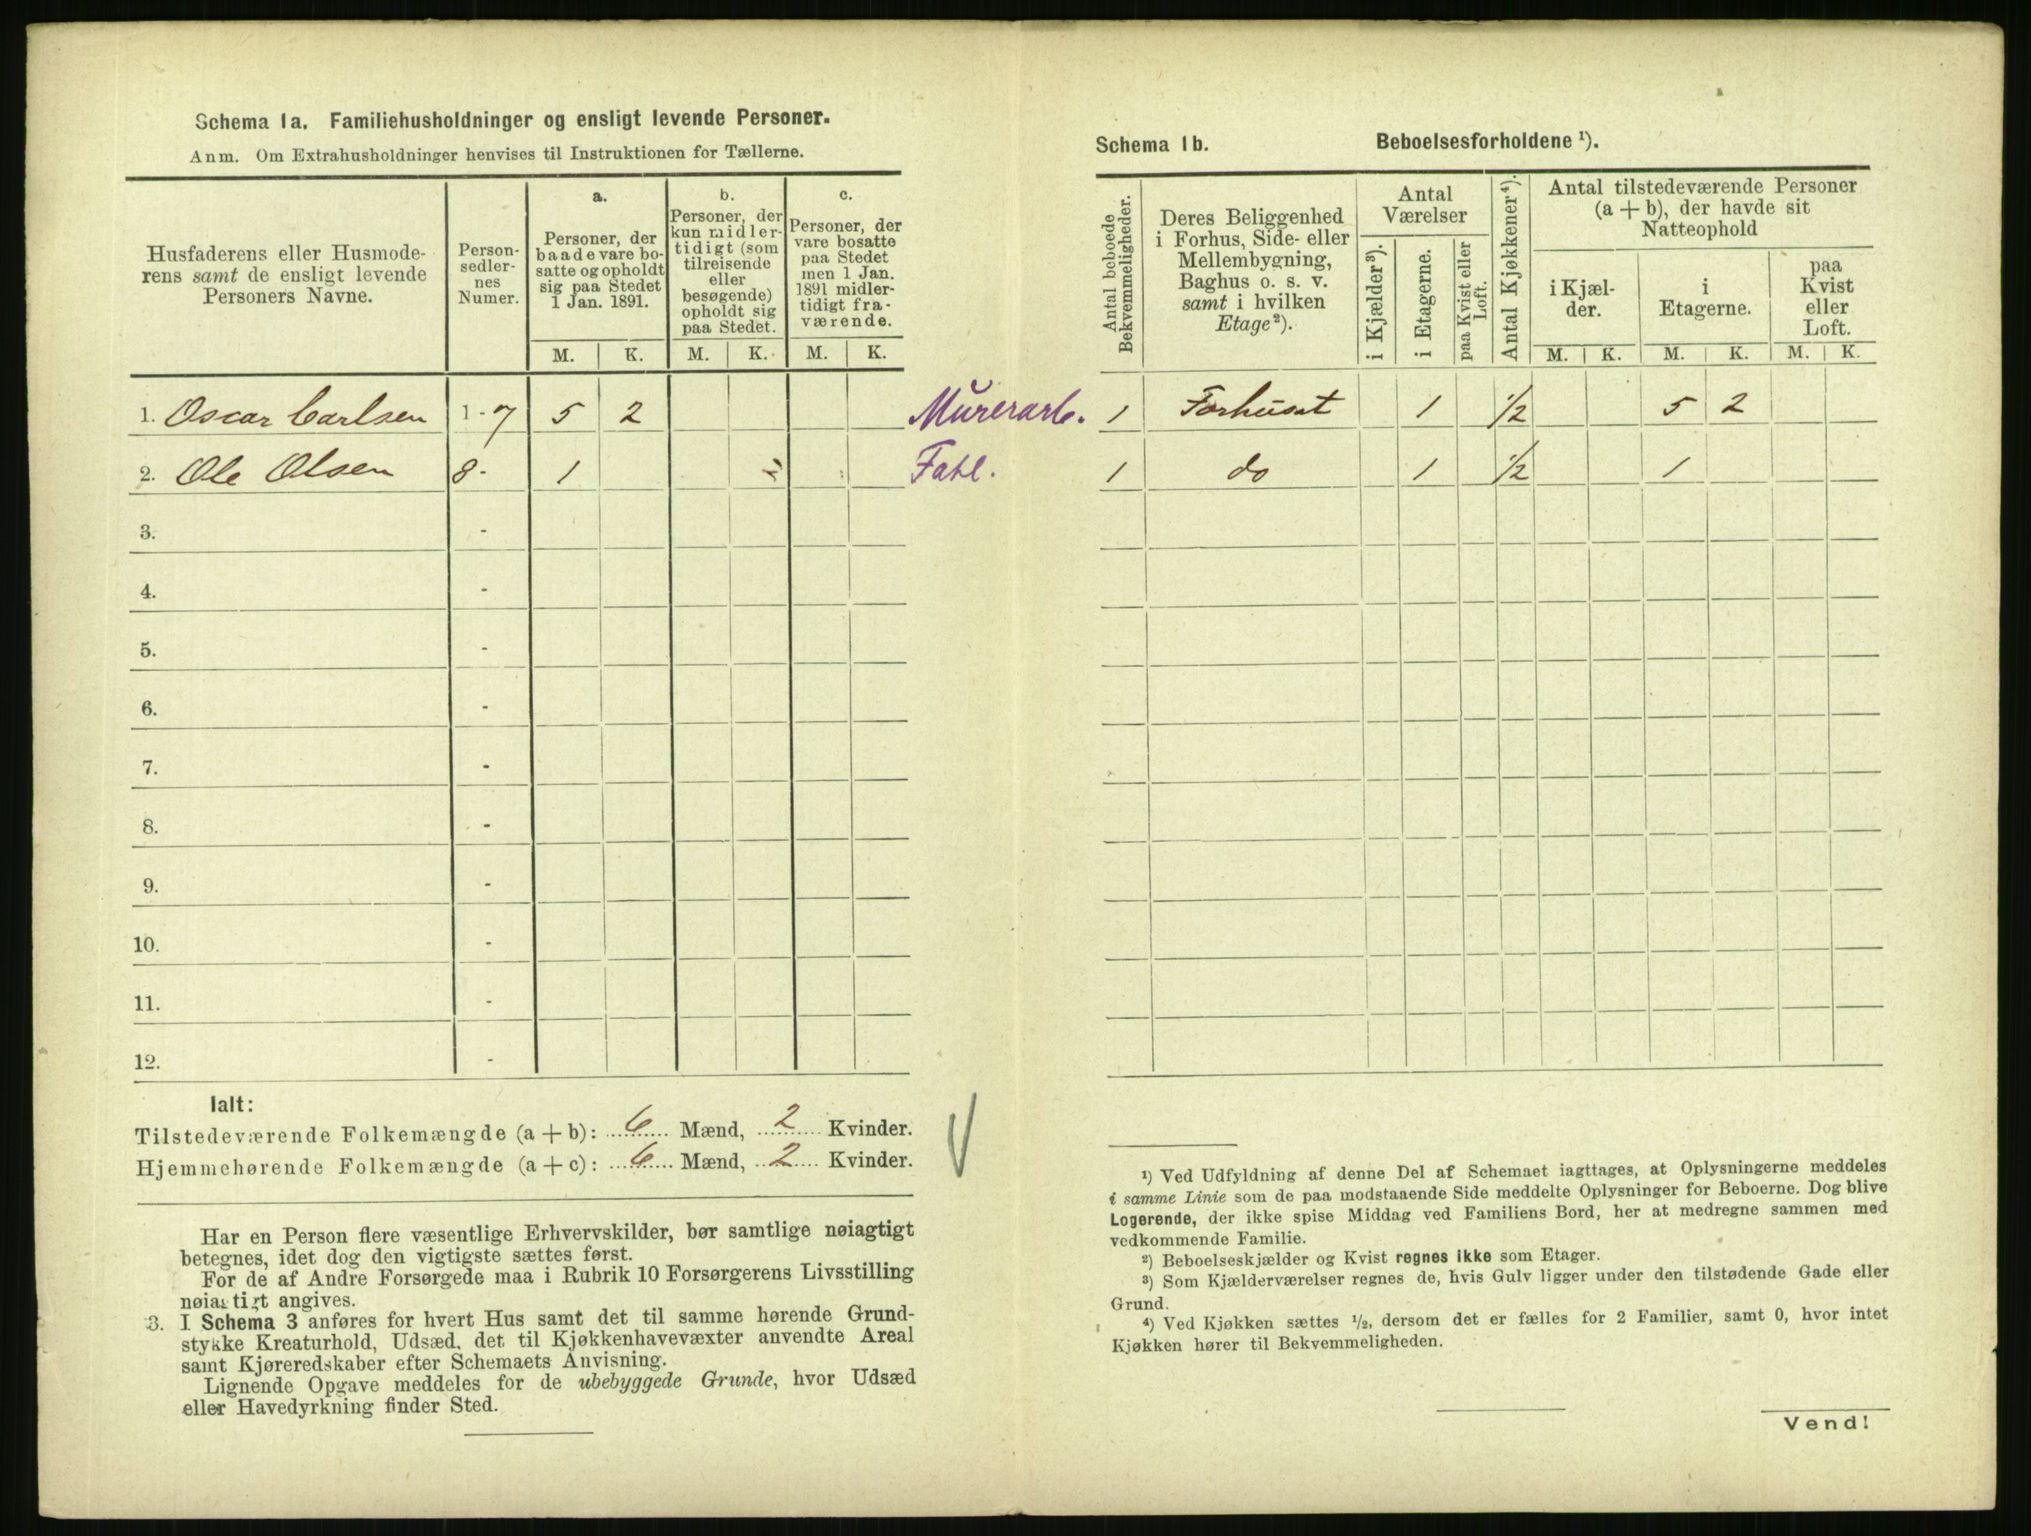 Schema 1a. Familiehusholdninger og ensligt levende Personer.
Anm. Om Extrahusholdninger henvises til Instruktionen for Tællerne.
Husfaderens eller Husmode-
rens samt de ensligt levende
Personers Navne.
Person-
sedler-
nes
Numer.
a.
Personer, der
baade vare bo-
satte og opholdt
sig paa Stedet
1 Jan. 1891.
b.
Personer, der
kun midler-
tidigt (som
tilreisende
eller
besøgende)
opholdt sig
paa Stedet.
c.
Personer, der
vare bosatte
paa Stedet
men 1 Jan.
1891 midler-
tidigt fra-
værende.
M. K. M. K. M. K.
1. Oscar Carlsen 1 - 7 5 2 Murerarb.
2. Ole Olsen 8 - 1 Fatl.
3. -
4. -
5. -
6. -
7. -
8. -
9. -
10. -
11. -
12. -
Ialt:
Tilstedeværende Folkemængde (a + b): 6 Mænd, 2 Kvinder.
Hjemmehørende Folkemængde (a + c): 6 Mænd, 2 Kvinder.
Har en Person flere væsentlige Erhvervskilder, bør samtlige nøiagtigt
betegnes, idet dog den vigtigste sættes først.
For de af Andre Forsørgede maa i Rubrik 10 Forsørgerens Livsstilling
nøiagtigt angives.
3. I Schema 3 anføres for hvert Hus samt det til samme hørende Grund-
stykke Kreaturhold, Udsæd, det til Kjøkkenhavevæxter anvendte Areal
samt Kjøreredskaber efter Schemaets Anvisning.
Lignende Opgave meddeles for de ubebyggede Grunde, hvor Udsæd
eller Havedyrkning finder Sted.
Schema 1b. Beboelsesforholdene ¹).
Antal beboede
Bekvemmeligheder.
Deres Beliggenhed
i Forhus, Side- eller
Mellembygning,
Baghus o. s. v.
samt i hvilken
Etage²).
Antal
Værelser
i Kjælder³).
i Etagerne.
paa Kvist eller
Loft.
Antal Kjøkkener⁴).
Antal tilstedeværende Personer
(a + b), der havde sit
Natteophold
i Kjæl-
der.
i
Etagerne.
paa
Kvist
eller
Loft.
M. K. M. K. M. K.
1 Forhuset 1 ½ 5 2
1 do 1 ½ 1
¹) Ved Udfyldning af denne Del af Schemaet iagttages, at Oplysningerne meddeles
i samme Linie som de paa modstaaende Side meddelte Oplysninger for Beboerne. Dog blive
Logerende, der ikke spise Middag ved Familiens Bord, her at medregne sammen med
vedkommende Familie.
²) Beboelseskjælder og Kvist regnes ikke som Etager.
³) Som Kjælderværelser regnes de, hvis Gulv ligger under den tilstødende Gade eller
Grund.
⁴) Ved Kjøkken sættes ½, dersom det er fælles for 2 Familier, samt 0, hvor intet
Kjøkken hører til Bekvemmeligheden.
Vend!